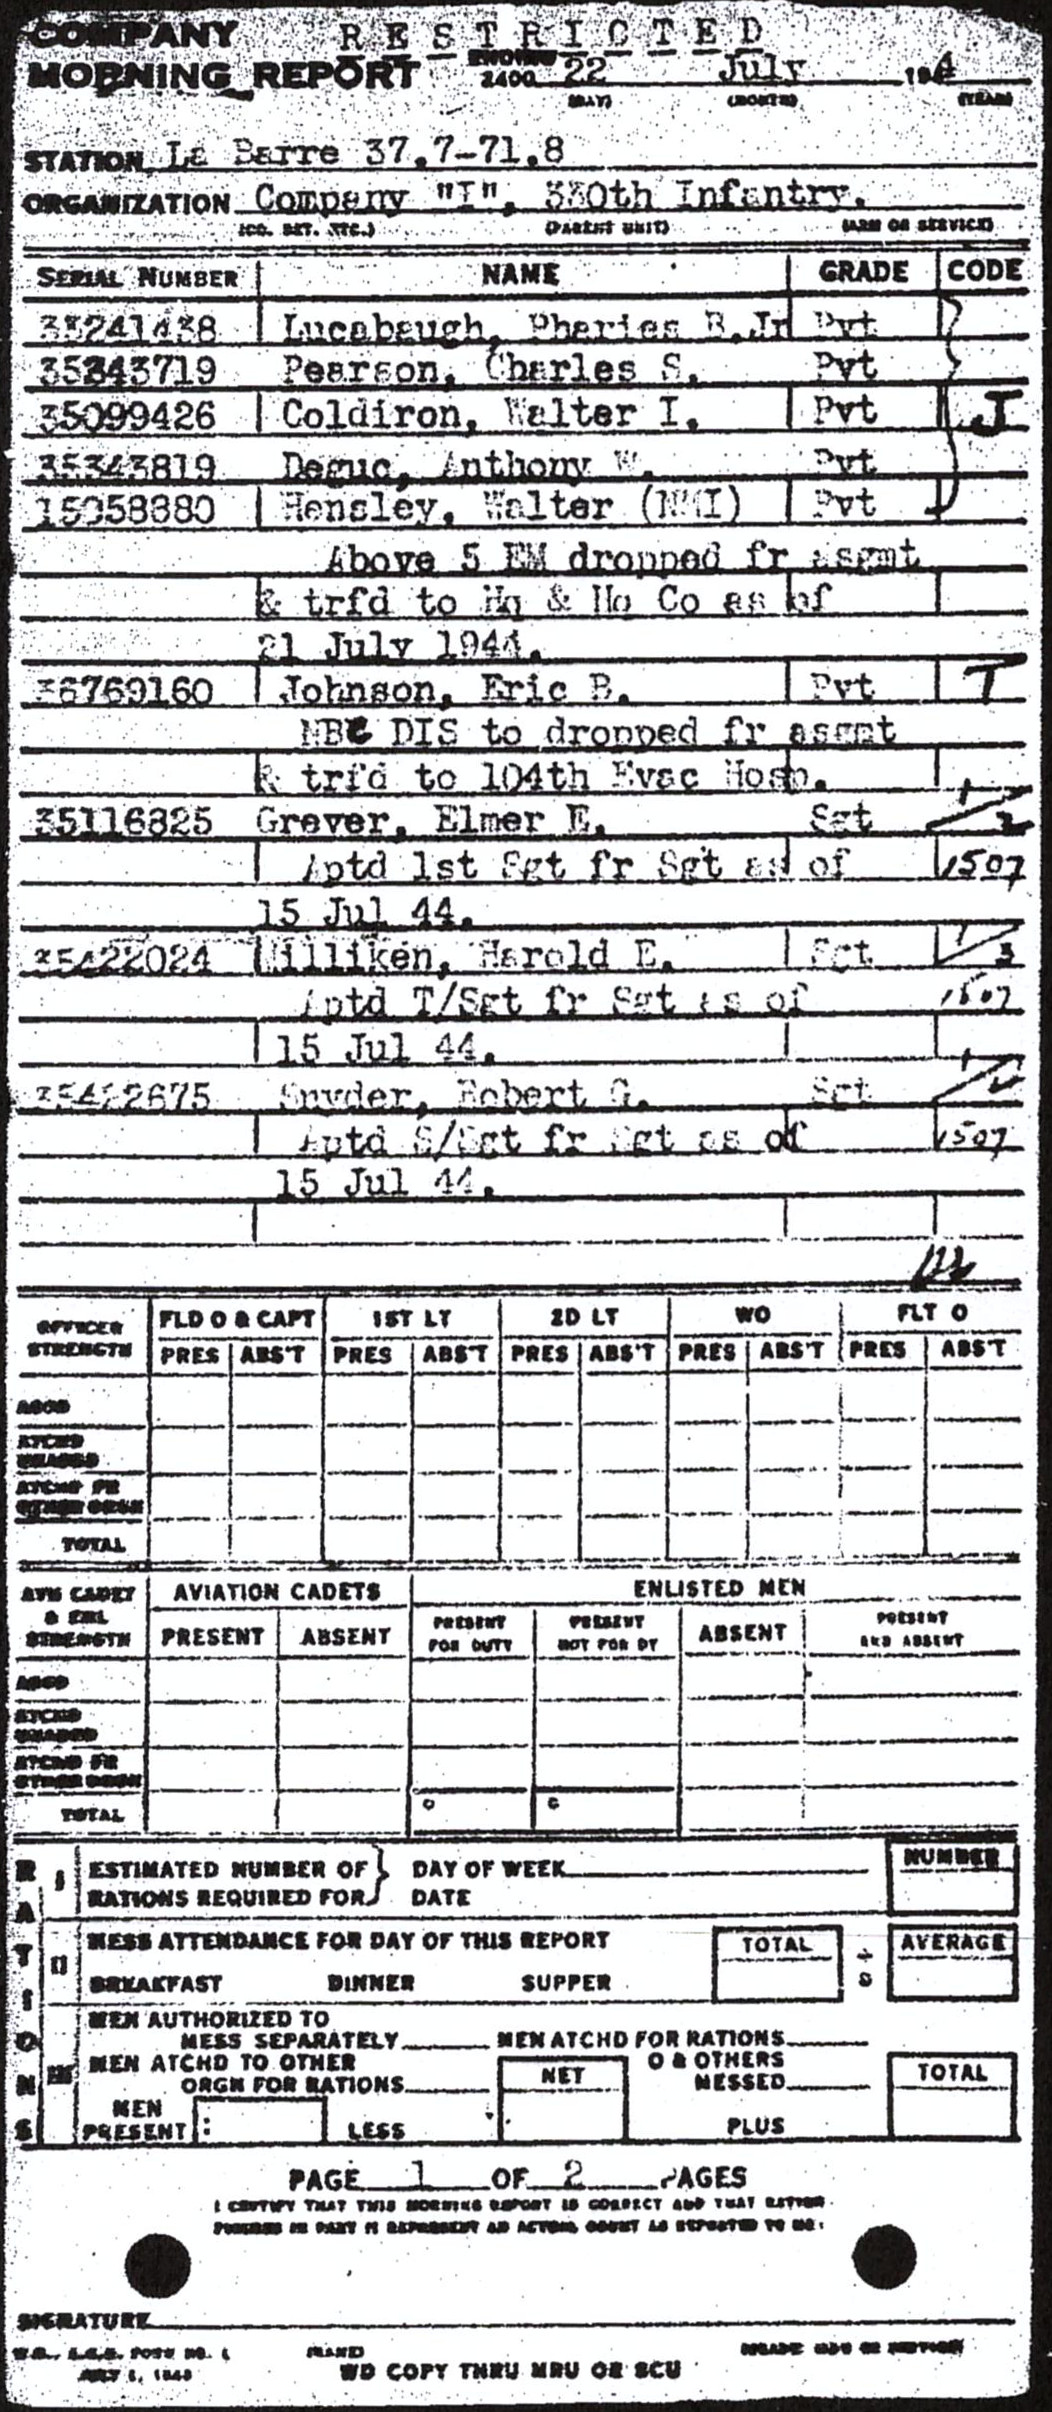 COMPANY RESTRICTED
MORNING REPORT ENDING 2400 22 July 194
(DAY) (MONTH) (YEAR)
STATION La Barre 37.7-71.8
ORGANIZATION Company "I", 330th Infantry.
(CO. DET. ETC.) (PARENT UNIT) (ARM OR SERVICE)
SERIAL NUMBER NAME GRADE CODE
33241438 Lucabaugh, Pharies B.Jr Pvt
35343719 Pearson, Charles S. Pvt
35099426 Coldiron, Walter I. Pvt J
35343819 Deguc, Anthony W. Pvt
15058880 Hensley, Walter (NMI) Pvt
Above 5 EM dropped fr asgmt
& trfd to Hq & Hq Co as of
21 July 1944.
36769160 Johnson, Eric B. Pvt T
NBC DIS to dropped fr asgmt
& trfd to 104th Evac Hosp.
35116825 Grever, Elmer E. Sgt 1/2
Aptd 1st Sgt fr Sgt as of 1507
15 Jul 44.
35422024 Milliken, Harold E. Sgt 1/3
Aptd T/Sgt fr Sgt as of 1507
15 Jul 44.
35422675 Snyder, Robert G. Sgt
Aptd S/Sgt fr Sgt as of 1507
15 Jul 44.
OFFICER STRENGTH FLD O & CAPT 1ST LT 2D LT WO FLT O
PRES ABS'T PRES ABS'T PRES ABS'T PRES ABS'T PRES ABS'T
ASGD
ATCHD UNASGD
ATCHD FR OTHER ORGN
TOTAL
AVN CADET & ENL STRENGTH AVIATION CADETS ENLISTED MEN
PRESENT ABSENT PRESENT FOR DUTY PRESENT NOT FOR DY ABSENT PRESENT AND ABSENT
ASGD
ATCHD UNASGD
ATCHD FR OTHER ORGN
TOTAL
RATIONS
I ESTIMATED NUMBER OF RATIONS REQUIRED FOR } DAY OF WEEK DATE NUMBER
II MESS ATTENDANCE FOR DAY OF THIS REPORT TOTAL ÷ AVERAGE
BREAKFAST DINNER SUPPER
III MEN AUTHORIZED TO
MESS SEPARATELY MEN ATCHD FOR RATIONS
MEN ATCHD TO OTHER ORGN FOR RATIONS NET O & OTHERS MESSED TOTAL
MEN PRESENT : LESS PLUS
PAGE 1 OF 2 PAGES
I CERTIFY THAT THIS MORNING REPORT IS CORRECT AND THAT RATION
FIGURES IN PART II REPRESENT AN ACTUAL COUNT AS REPORTED TO ME:
SIGNATURE
W.D., A.G.O. FORM NO. 1 (NAME)
JULY 1, 1943 WD COPY THRU MRU OR SCU